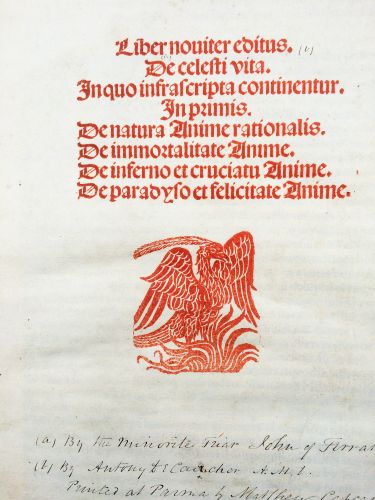 Liber nouiter editus. (a)
De celesti vita.
In quo infrascripta continentur.
In primis.
De natura Anime rationalis.
De immortalitate Anime.
De inferno et cruciatu Anime.
De paradyso et felicitate Anime.
(a) By the minorite friar John of Ferrar
(b) By Antony A.M.D.
Printed at Parma by Matthew